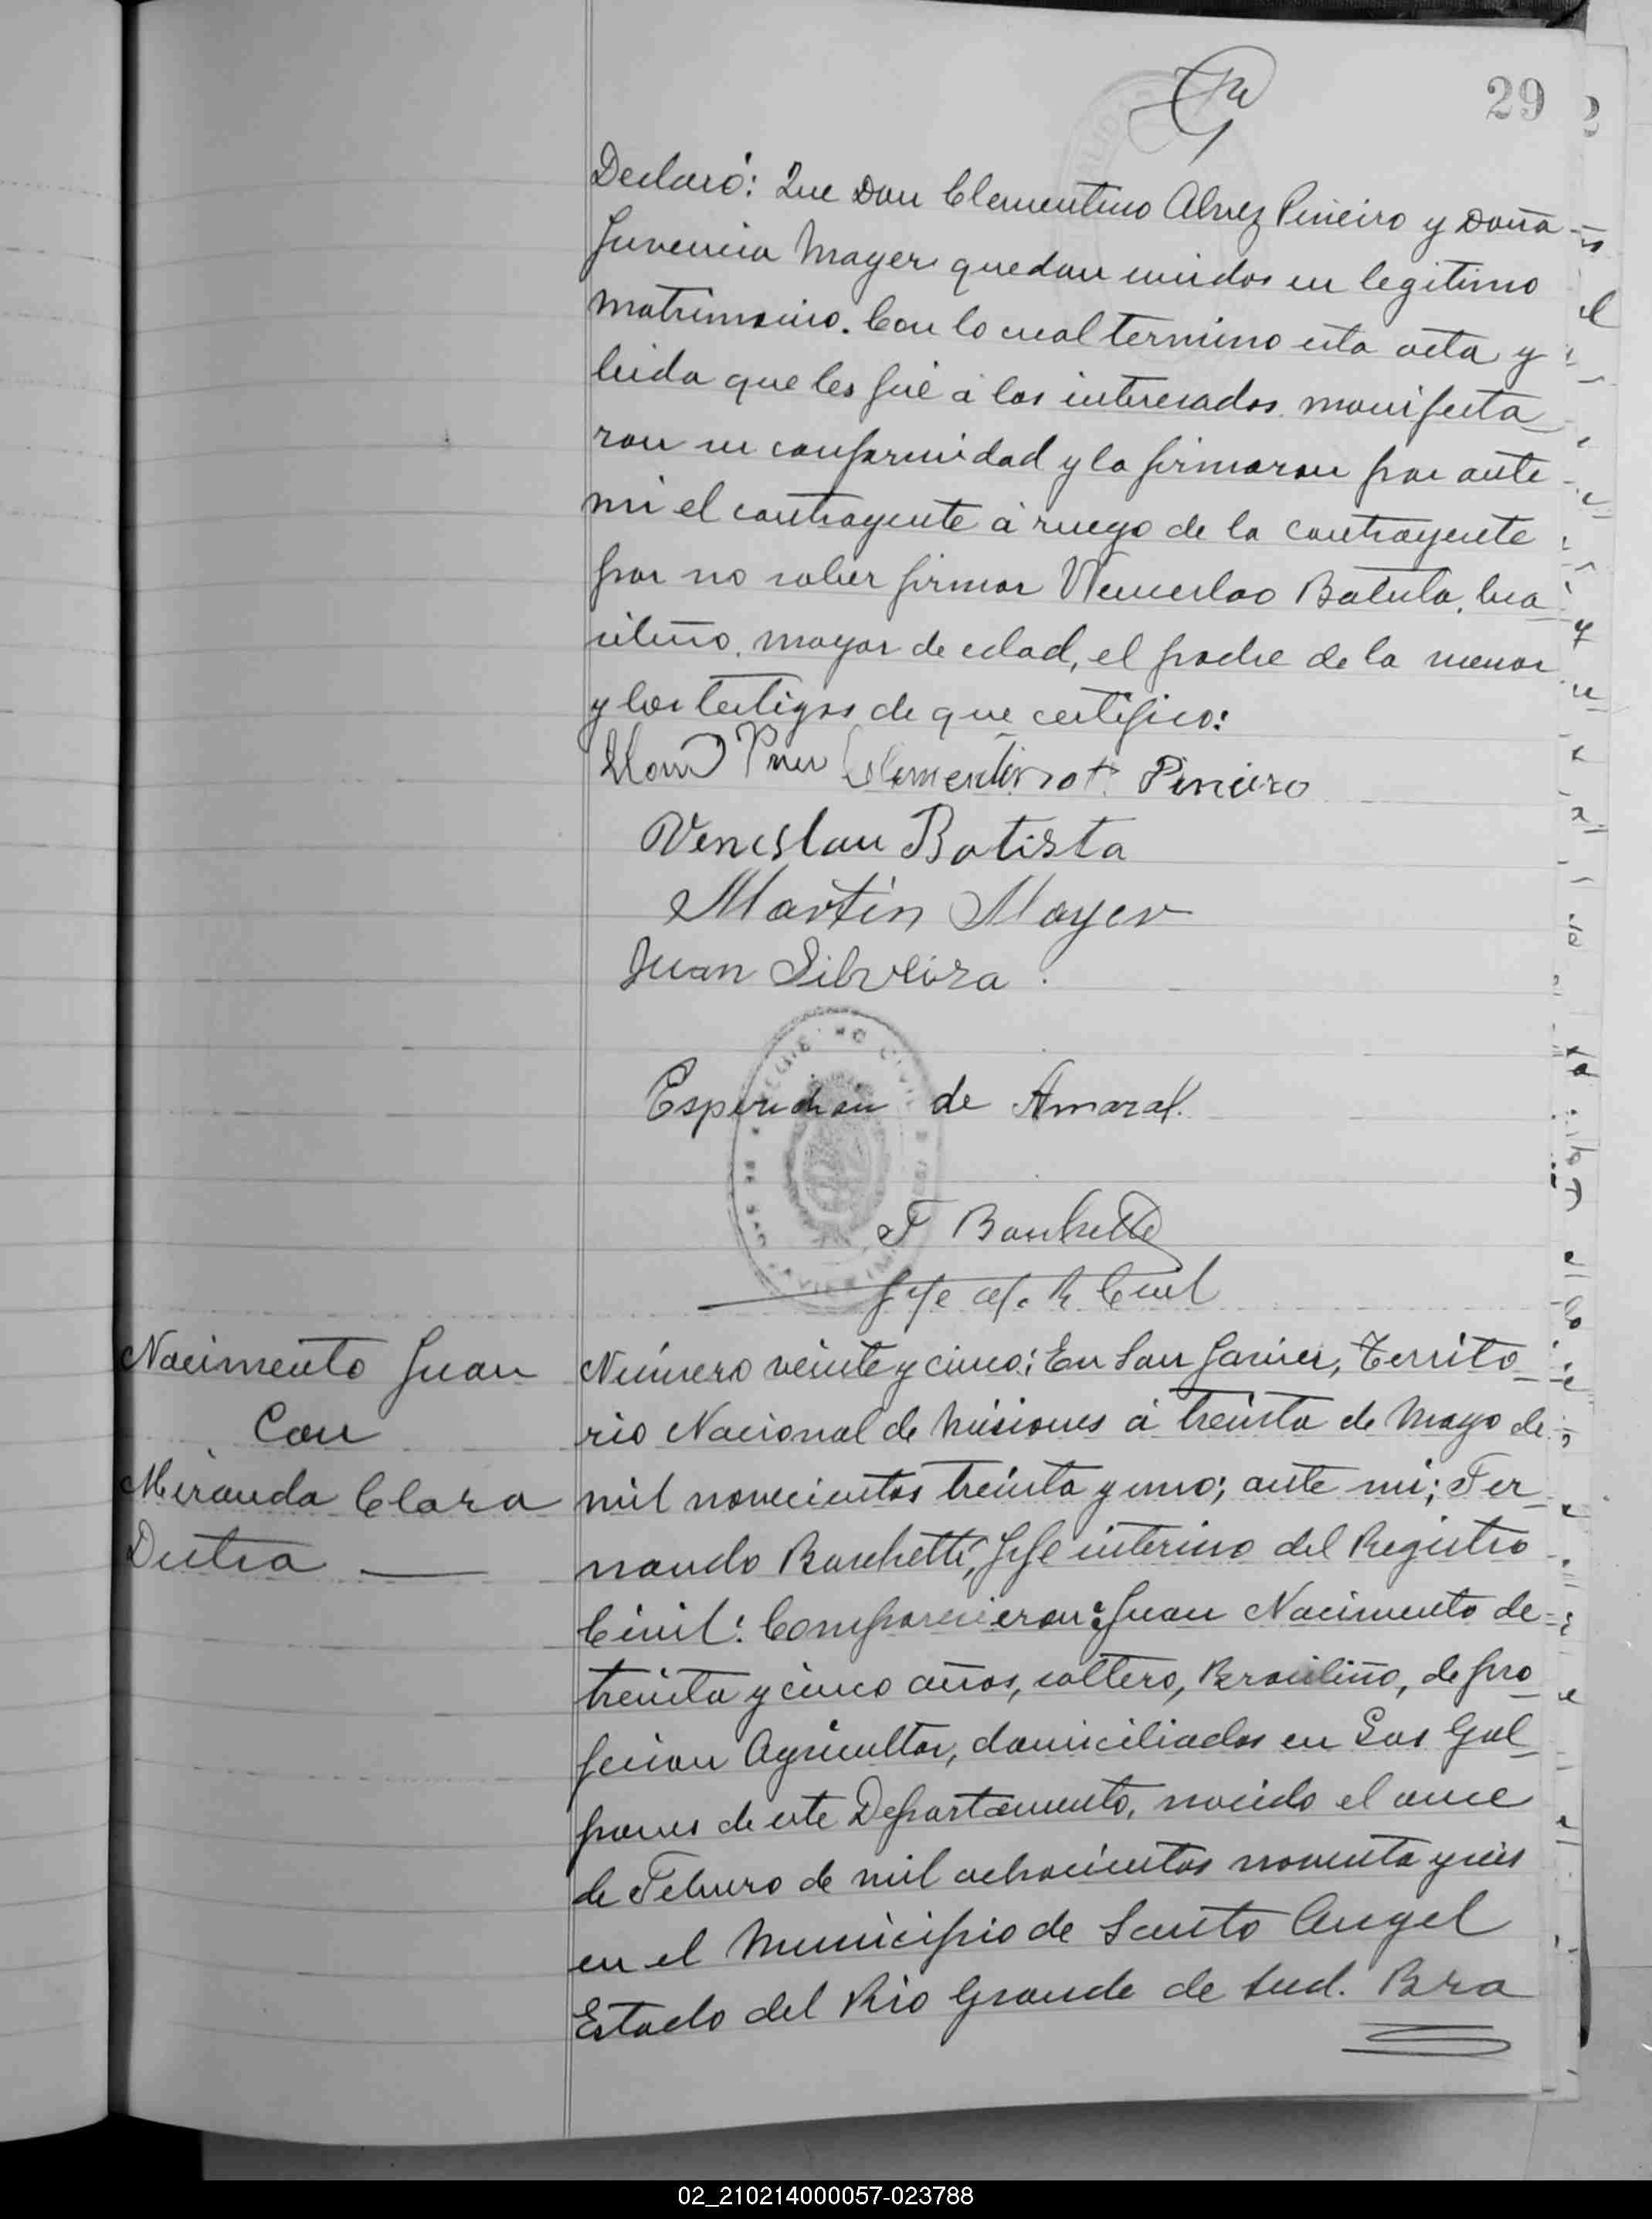 29
Declaró: Que Don Clementino Alvez Pineiro y Doña
Juvencia Mayer quedan unidos en legitimo
matrimonio. Con lo cual termino esta acta y
leida que les fué á los interesados manifesta
ron su conformidad y la firmaron por ante
mi el contrayente á ruego de la contrayente
por no saber firmar Wenceslao Batista, bra
sileño, mayor de edad, el padre de la menor
y los testigos de que certifico:
Clementino A. Pineiro
Venislau Batista
Martin Mayer
Juan Silveira
Esperidian de Amaral.
F Banchetti
Jefe of. R. Civil
Nacimento Juan
Con
Miranda Clara
Dutra
Número veinte y cinco: En San Javier, Territo
rio Nacional de Misiones á treinta de Mayo de
mil novecientos treinta y uno; ante mi; Fer
nando Banchetti, Jefe interino del Registro
Civil: Comparecieron: Juan Nacimento de
treinta y cinco años, soltero, Brasileño, de pro
fecion Agricultor, domiciliados en Los Gal
pones de este Departamento, nacido el once
de Febrero de mil ochocientos noventa y seis
en el Municipio de Santo Angel
Estado del Rio Grande de Sud. Bra
02_210214000057-023788